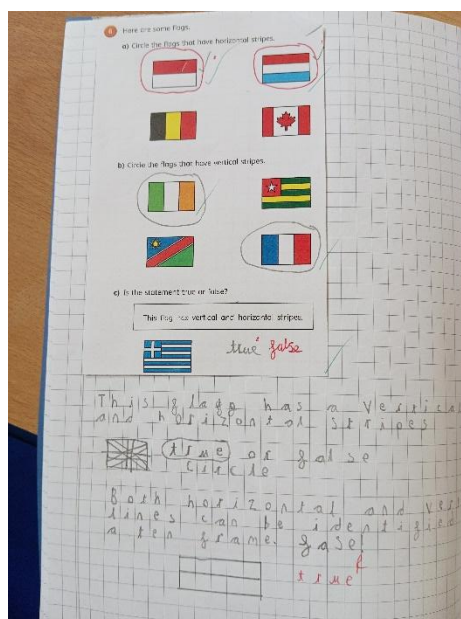 8 Here are some flags.
a) Circle the flags that have horizontal stripes.
b) Circle the flags that have vertical stripes.
c) Is the statement true or false?
This flag has vertical and horizontal stripes.
true false
This flage has a vertical
and horizontal stripes
true or false
circle
Both horizontal and ver
lines can be identified
a ten frame. fase
true